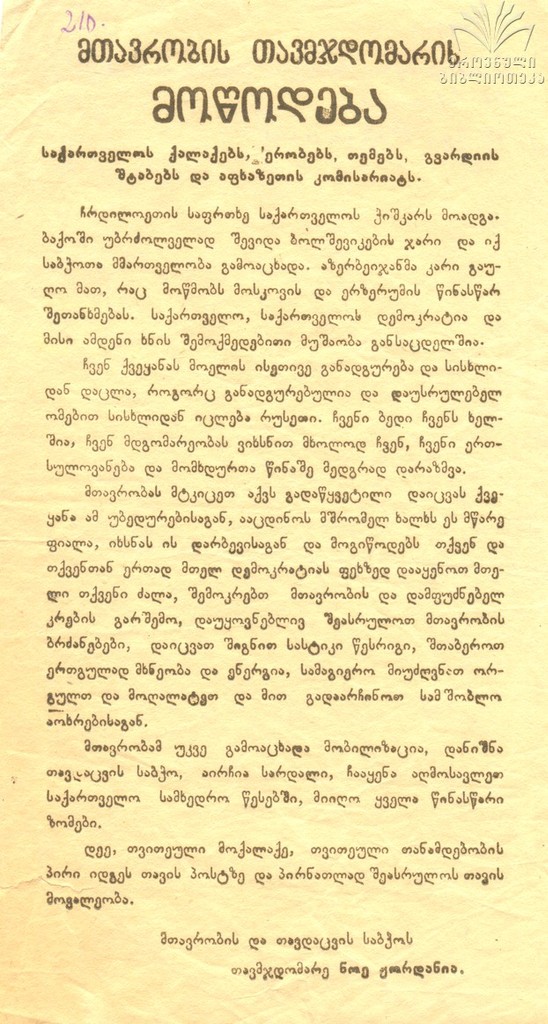 210.
ეროვნული
ბიბლიოთეკა
მთავრობის თავმჯდომარის
მოწოდება
საქართველოს ქალაქებს, ერობებს, თემებს, გვარდიის
შტაბებს და აფხაზეთის კომისარიატს.
ჩრდილოეთის საფრთხე საქართველოს ჭიშკარს მოადგა.
ბაქოში უბრძოლველად შევიდა ბოლშევიკების ჯარი და იქ
საბჭოთა მმართველობა გამოაცხადა. აზერბეიჯანმა კარი გაუ-
ღო მათ, რაც მოწმობს მოსკოვის და ერზერუმის წინასწარ
შეთანხმებას. საქართველო, საქართველოს დემოკრატია და
მისი ამდენი ხნის შემოქმედებითი მუშაობა განსაცდელშია.
ჩვენ ქვეყანას მოელის ისეთივე განადგურება და სისხლი-
დან დაცლა, როგორც განადგურებულია და დაუსრულებელ
ომებით სისხლიდან იცლება რუსეთი. ჩვენი ბედი ჩვენს ხელ-
შია, ჩვენ მდგომარეობას ვიხსნით მხოლოდ ჩვენ, ჩვენი ერთ-
სულოვანება და მომხდურთა წინაშე მედგრად დარაზმვა.
მთავრობას მტკიცეთ აქვს გადაწყვეტილი დაიცვას ქვე-
ყანა ამ უბედურებისაგან, ააცდინოს მშრომელ ხალხს ეს მწარე
ფიალა, იხსნას ის დარბევისაგან და მოგიწოდებს თქვენ და
თქვენთან ერთად მთელ დემოკრატიას ფეხზედ დააყენოთ მთე-
ლი თქვენი ძალა, შემოკრებთ მთავრობის და დამფუძნებელ
კრების გარშემო, დაუყოვნებლივ შეასრულოთ მთავრობის
ბრძანებები, დაიცვათ შიგნით სასტიკი წესრიგი, შთაბეროთ
ერთგულად მხნეობა და ენერგია, სამაგიერო მიუძღვნათ ორ-
გულთ და მოღალატეთ და მით გადაარჩინოთ სამშობლო
აოხრებისაგან.
მთავრობამ უკვე გამოაცხადა მობილიზაცია, დანიშნა
თავდაცვის საბჭო, აირჩია სარდალი, ჩააყენა აღმოსავლეთ
საქართველო სამხედრო წესებში, მიიღო ყველა წინასწარი
ზომები.
დეე, თვითეული მოქალაქე, თვითეული თანამდებობის
პირი იდგეს თავის პოსტზე და პირნათლად შეასრულოს თავის
მოვალეობა.
მთავრობის და თავდაცვის საბჭოს
თავმჯდომარე ნოე ჟორდანია.